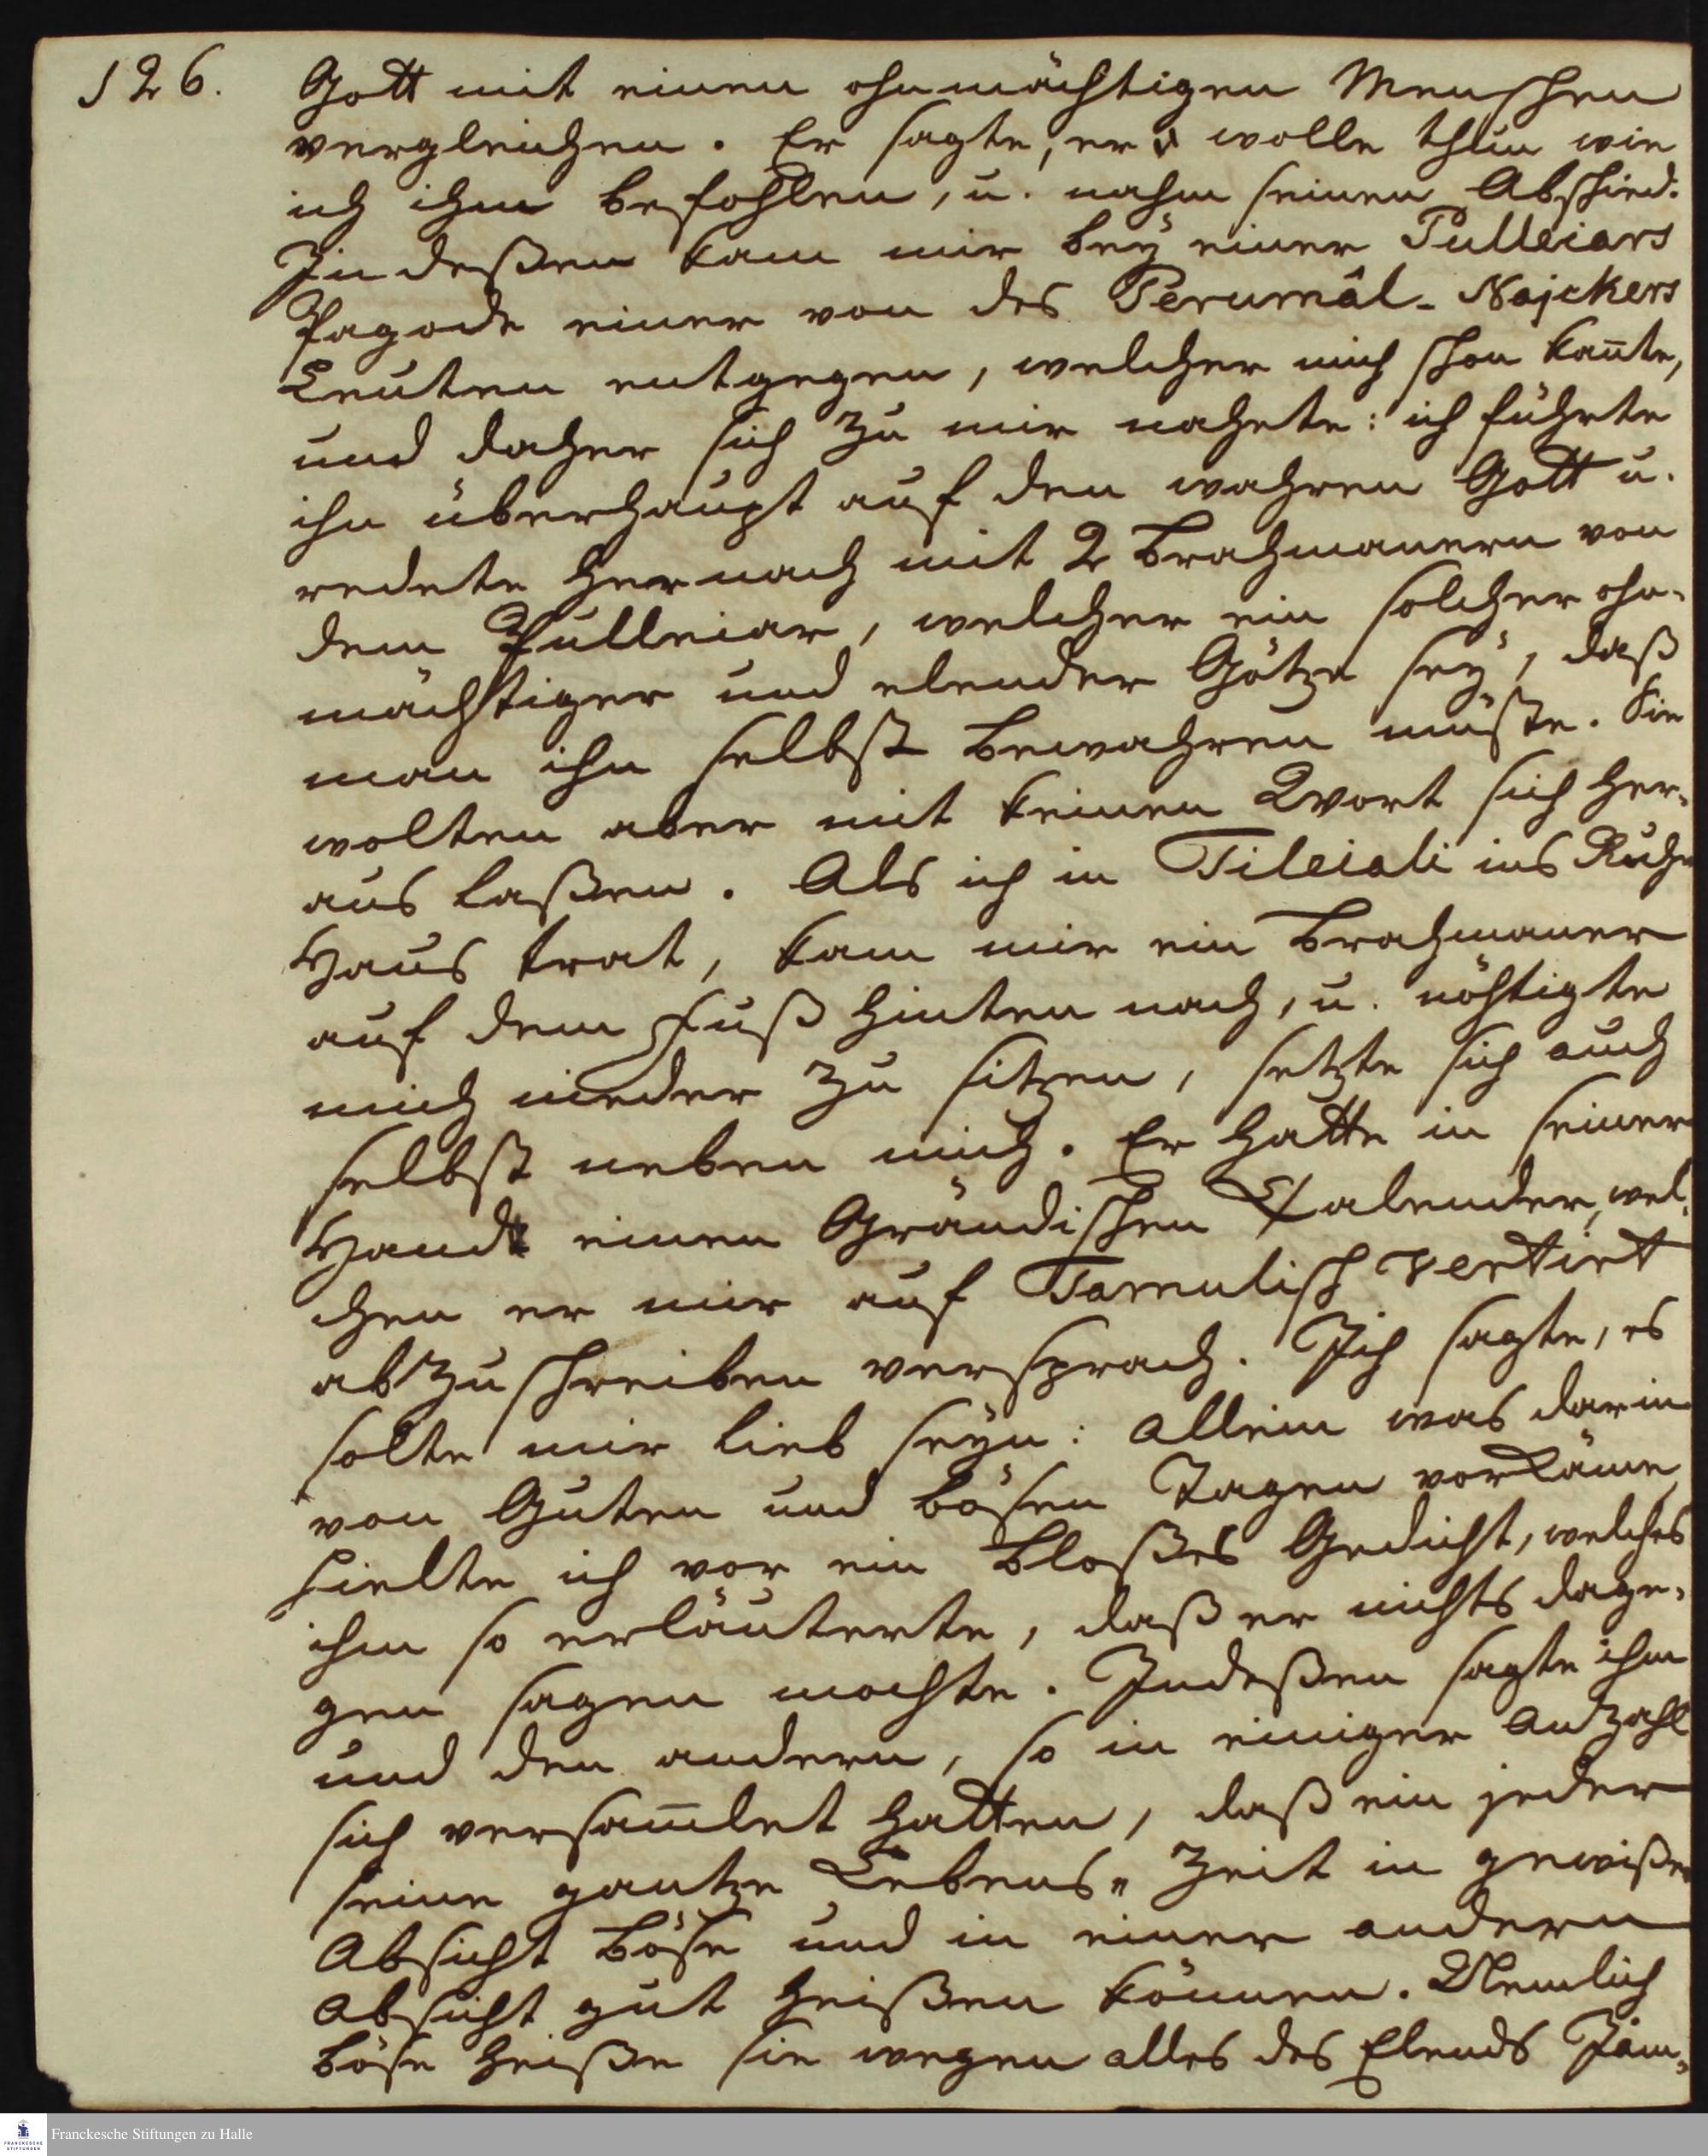 126.
Gott mit einen ohnmächtigen Menschen
vergleichen. Er sagte, er wolle thun wie
ich ihm befohlen, u. nahm seinen Abschied.
Indeßen kam mir beÿ einer Pulleiars
Pagode einer von des Perumâl-Naickers
Leuten entgegen, welcher mich schon kañte,
und daher sich zu mir nahete: ich führte
ihn überhaupt auf den wahren Gott u.
redete hernach mit 2 Brahmanern von
dem Pulleiar, welcher ein solcher ohn-
mächtiger und elender Götze seÿ, daß
man ihn selbst bewahren müste. Sie
wolten aber mit keinen Wort sich her-
aus laßen. Als ich in Tileiali ins Ruhe
Haus trat, kam mir ein Brahmaner
auf dem Fuß hinten nach, u. nöhtigte
mich nieder zu sitzen, setzte sich auch
selbst neben mich. Er hatte in seiner
Handt einen Grändischen Calender, wel-
chen er mir auf Tamulisch vertirt
abzuschreiben versprach. Ich sagte, es
solte mir lieb seÿn: allein was darin
von Guten und bösen Tagen vorkäme,
hielte ich vor ein bloßes Gedicht, welches
ihm so erläuterte, daß er nichts dage-
gen sagen mochte. Indeßen sagte ihm
und den andern, so in einiger Antzahl
sich versam̅let hatten, daß ein jeder
seine gantze Lebens-Zeit in gewißer
Absicht böse und in einer andern
Absicht gut heißen können. Nemlich
böse heiße sie wegen alles des Elends Jam-
Franckesche Stiftungen zu Halle